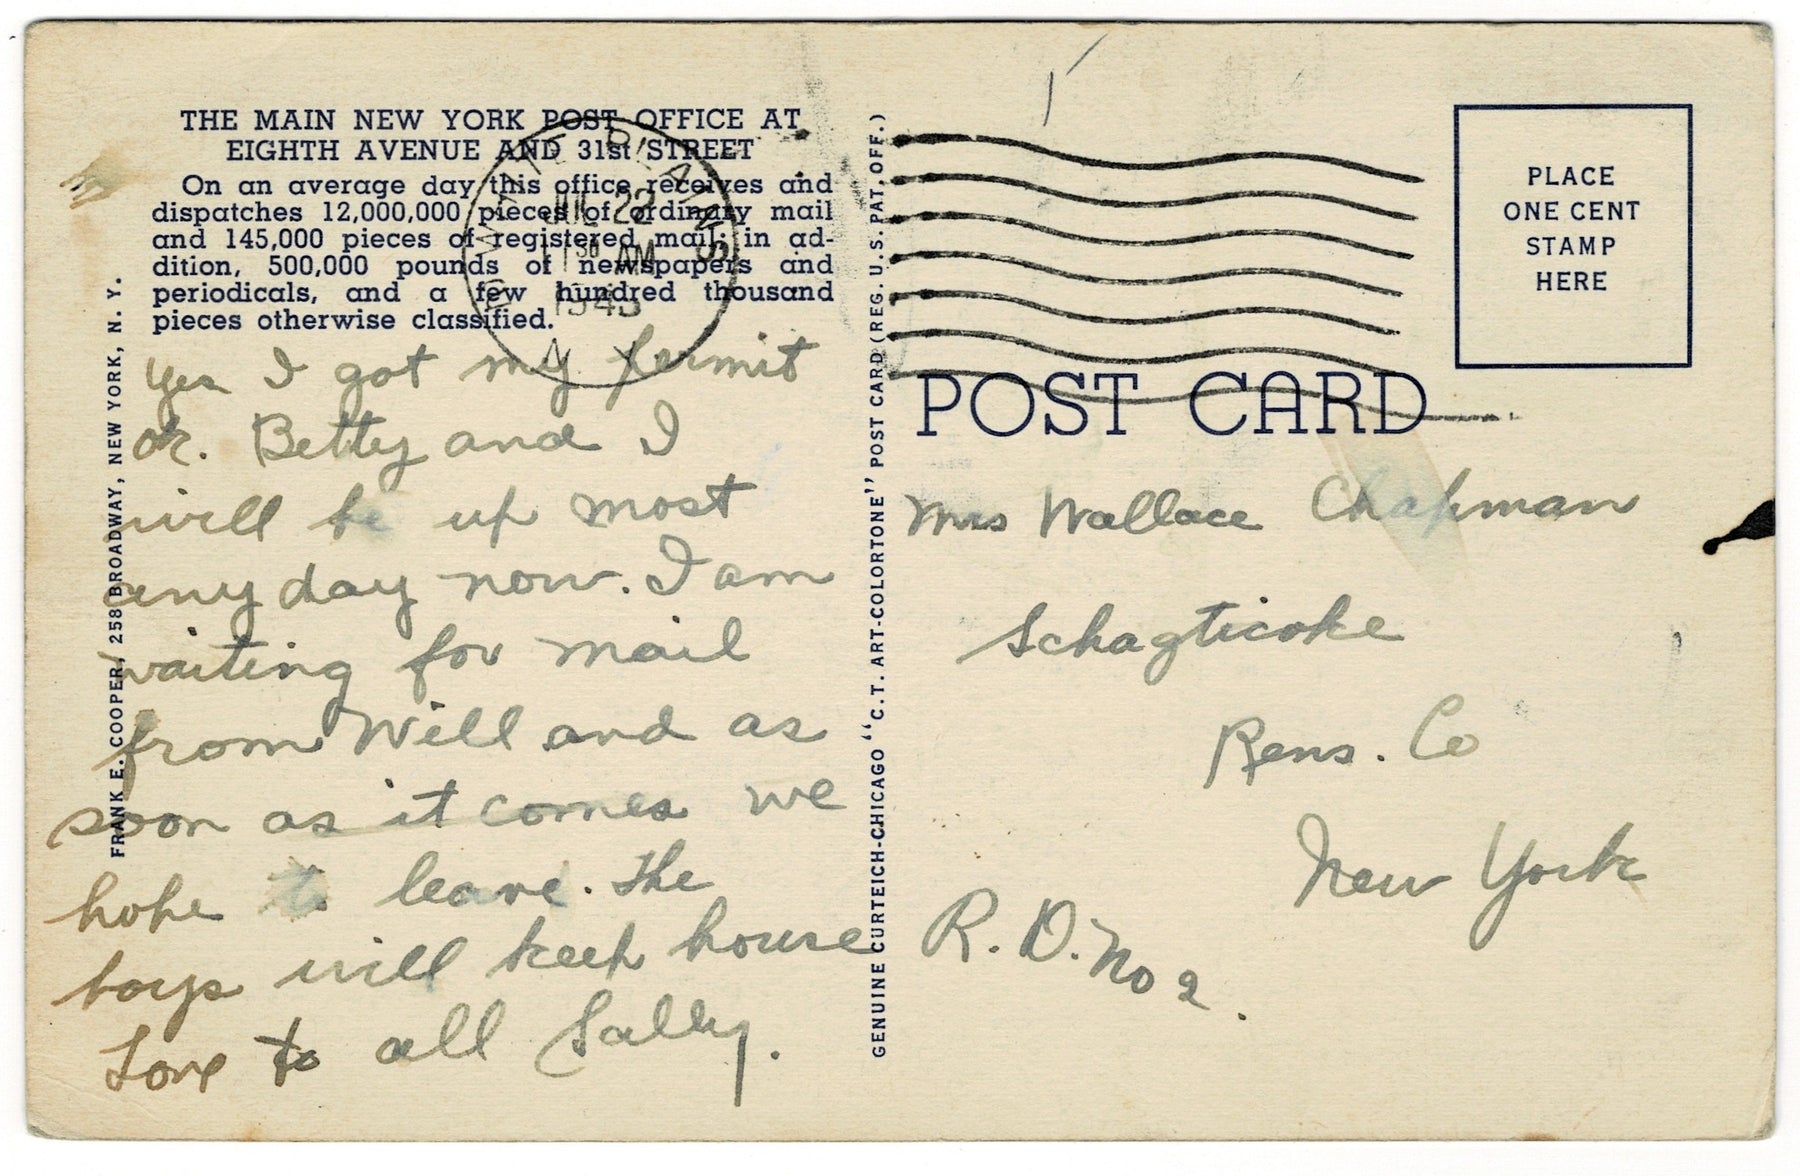 THE MAIN NEW YORK POST OFFICE AT
EIGHTH AVENUE AND 31st STREET
On an average day this office receives and
dispatches 12,000,000 pieces of ordinary mail
and 145,000 pieces of registered mail; in ad-
dition, 500,000 pounds of newspapers and
periodicals, and a few hundred thousand
pieces otherwise classified.
Yes I got my permit
ok. Betty and I
will be up most
any day now. I am
waiting for mail
from Will and as
soon as it comes we
hope to leave. The
boys will keep house
Love to all Sally.
FRANK E. COOPER, 258 BROADWAY, NEW YORK, N. Y.
GENUINE CURTEICH-CHICAGO "C. T. ART-COLORTONE" POST CARD (REG. U. S. PAT. OFF.)
WHITE PLAINS
JUL 22
11 30 AM
1943
N Y
PLACE
ONE CENT
STAMP
HERE
POST CARD
Mrs Wallace Chapman
Schagticoke
Rens. Co
New York
R. D. No 2.